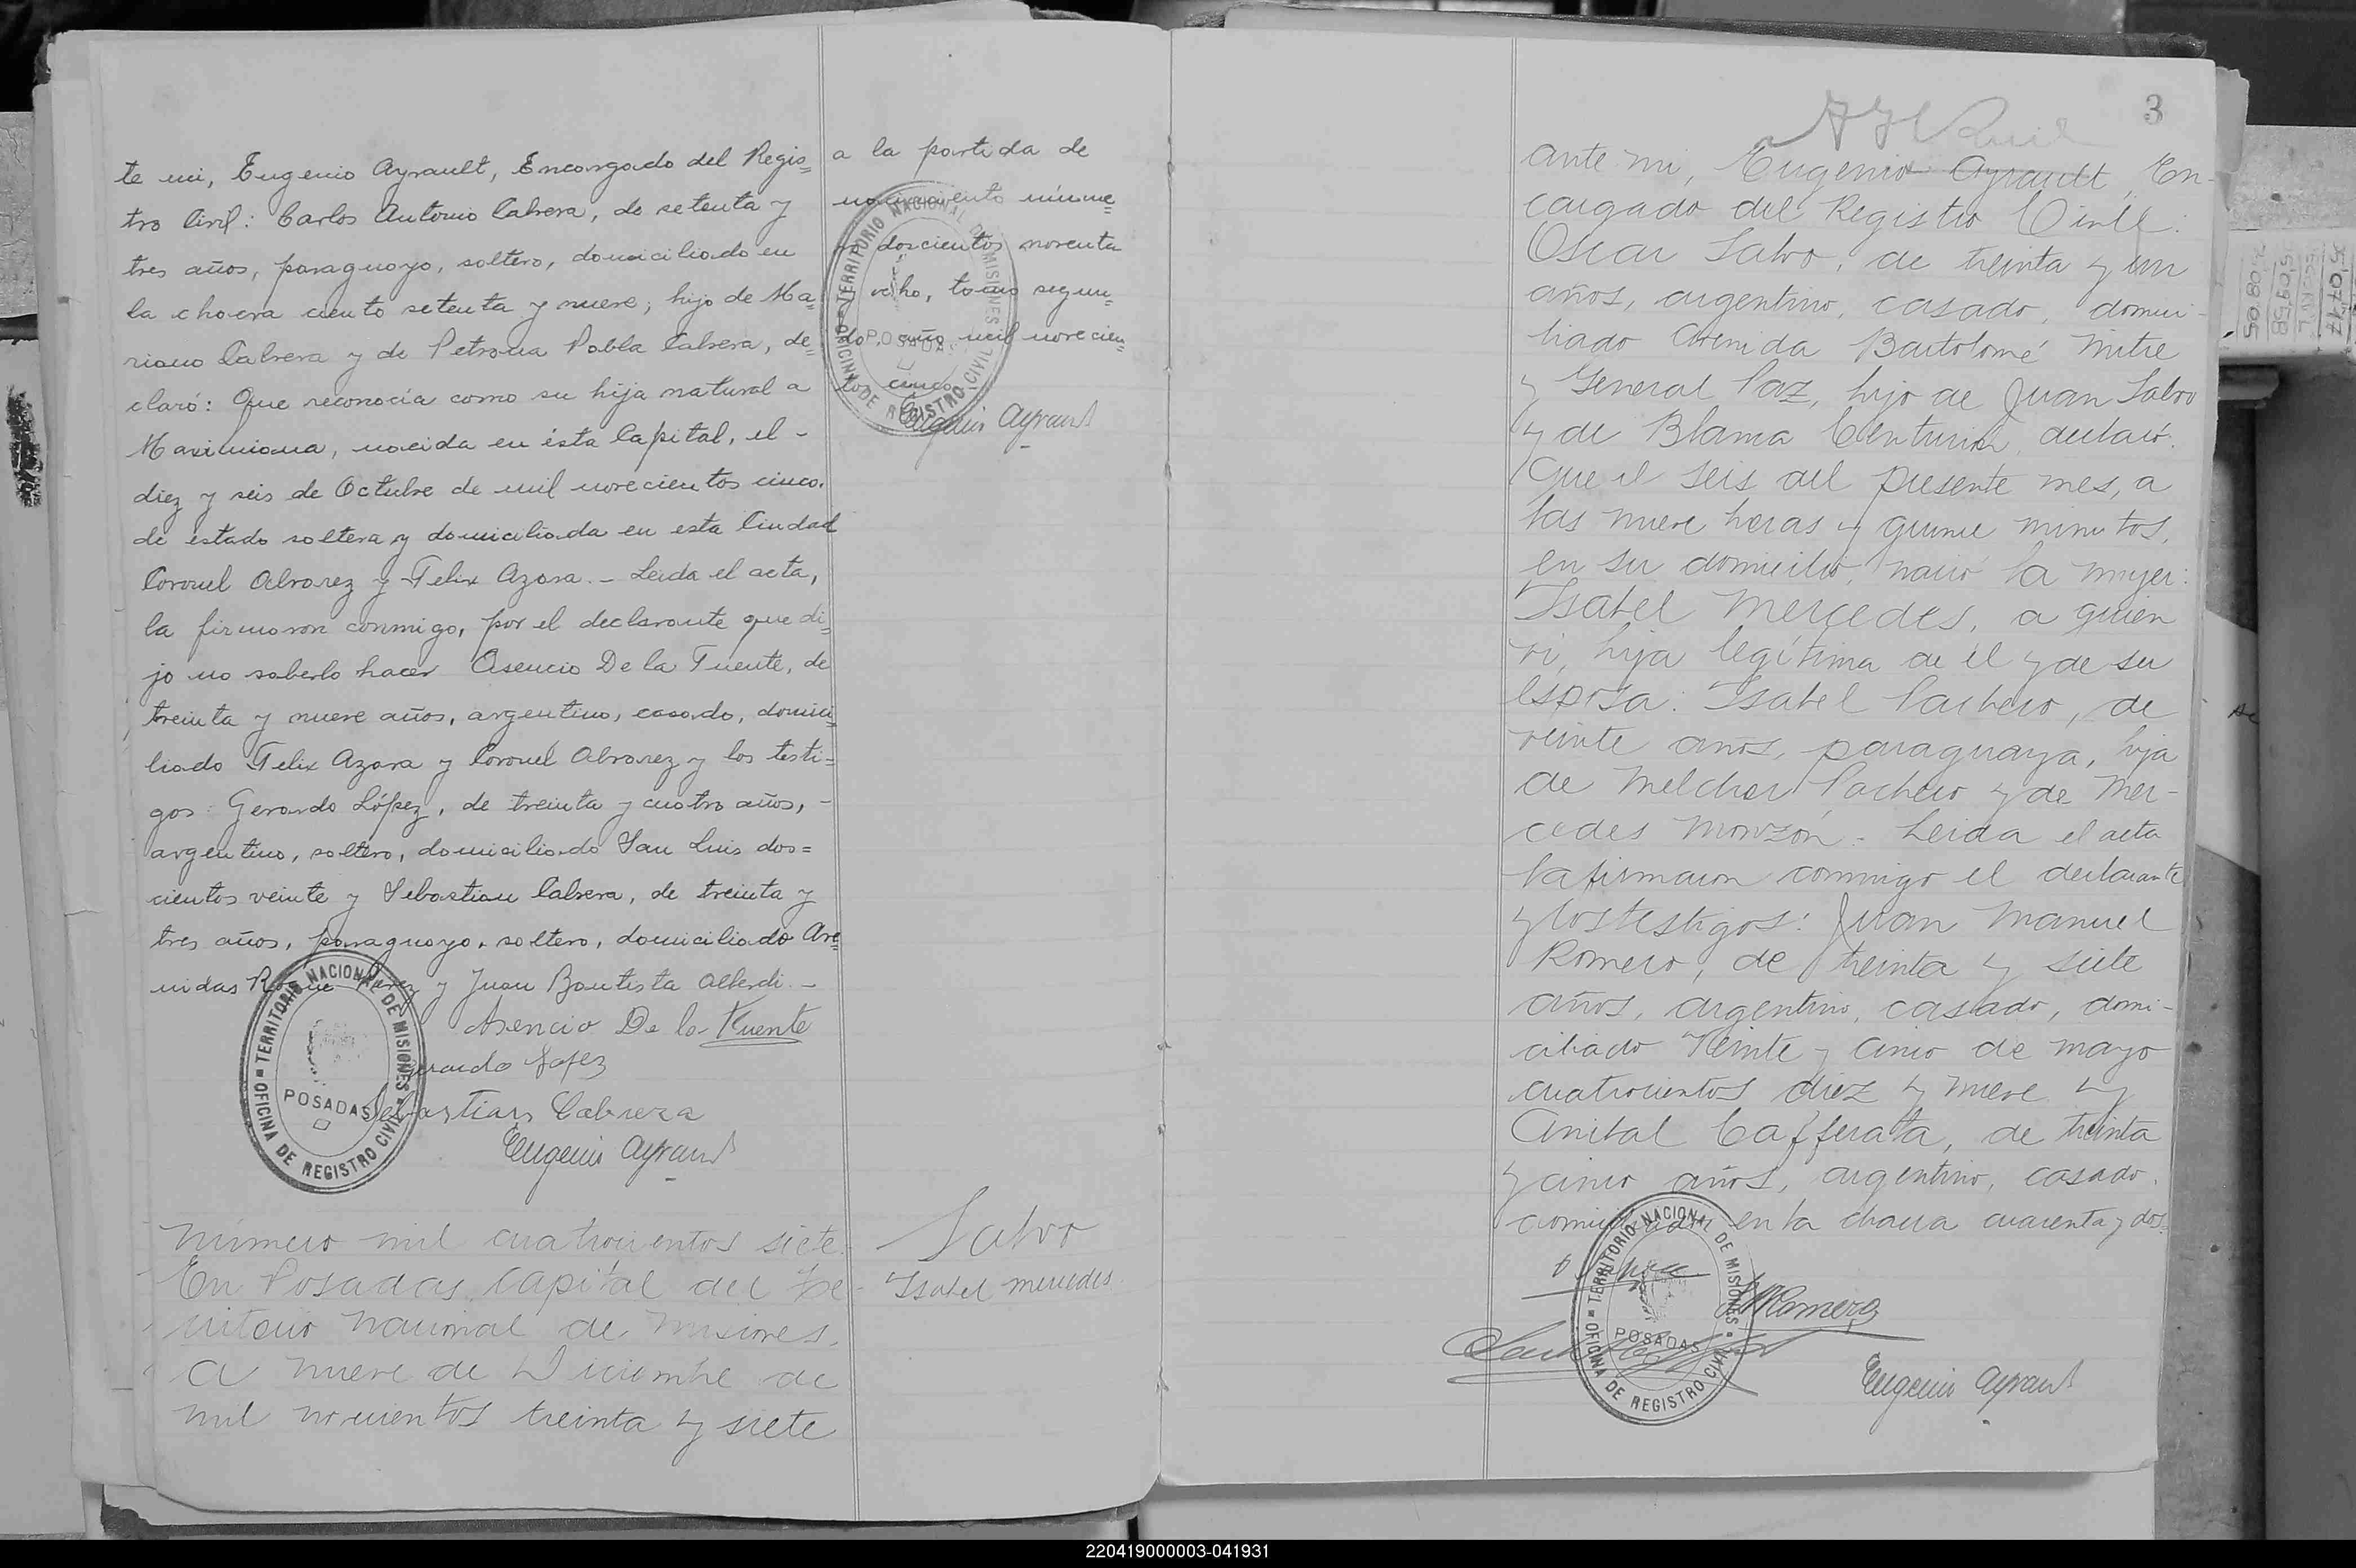 te mi, Eugenio Ayrault, Encargado del Regis=
tro Civil: Carlos Antonio Cabrera, de setenta y
tres años, paraguayo, soltero, domiciliado en
la chacra ciento setenta y nueve, hijo de Ma=
riano Cabrera y de Petrona Pobla Cabrera, de=
claró: Que reconocía como su hija natural a
Maximiana, nacida en ésta Capital, el -
diez y seis de Octubre de mil novecientos cinco.
de estado soltera y domiciliada en esta Ciudad
Coronel Alvarez y Felix Azara. - Leida el acta,
la firmaron conmigo, por el declarante que di=
jo no saberlo hacer Asencio De la Fuente, de
treinta y nueve años, argentino, casado, domici=
liado Felix Azara y Coronel Alvarez y los testi=
gos: Gerardo López, de treinta y cuatro años, -
argentino, soltero, domiciliado San Luis dos=
cientos veinte y Sebastian Cabrera, de treinta y
tres años, paraguayo, soltero, domiciliado Ave=
nidas Roque Perez y Juan Bautista Alberdi. -
Asencio De la Fuente
Gerardo Lopez
Sebastian Cabrera
Eugenio Ayrault
TERRITORIO NACIONAL DE MISIONES
POSADAS
OFICINA DE REGISTRO CIVIL
a la partida de
nacimiento núme=
ro doscientos noventa
y ocho, tomo segun=
do, año mil novecien=
tos cinco
Eugenio Ayrault
TERRITORIO NACIONAL DE MISIONES
POSADAS
OFICINA DE REGISTRO CIVIL
Número mil cuatrocientos siete.
En Posadas, Capital del Te-
rritorio Nacional de Misiones,
a nueve de Diciembre de
mil novecientos treinta y siete
Salvo
Isabel Mercedes.
3
ante mi, Eugenio Ayrault, En-
cargado del Registro Civil:
Oscar Salvo, de treinta y un
años, argentino, casado, domici-
liado Avenida Bartolomé Mitre
y General Paz, hijo de Juan Salvo
y de Blama Centurión, declaró:
Que el seis del presente mes, a
las nueve horas y quince minutos,
en su domicilio, nació la mujer:
Isabel Mercedes, a quien
vi, hija legítima de él y de su
esposa: Isabel Pacheco, de
veinte años, paraguaya, hija
de Melchor Pacheco y de Mer-
cedes Monzón. Leida el acta
la firmaron conmigo el declarante
y los testigos: Juan Manuel
Romero, de treinta y siete
años, argentino, casado, domi-
ciliado Veinte y cinco de mayo
cuatrocientos diez y nueve y
Anibal Cafferata, de treinta
y cinco años, argentino, casado,
domiciliado en la chacra cuarenta y dos.
Romero
Eugenio Ayrault
TERRITORIO NACIONAL DE MISIONES
POSADAS
OFICINA DE REGISTRO CIVIL
220419000003-041931